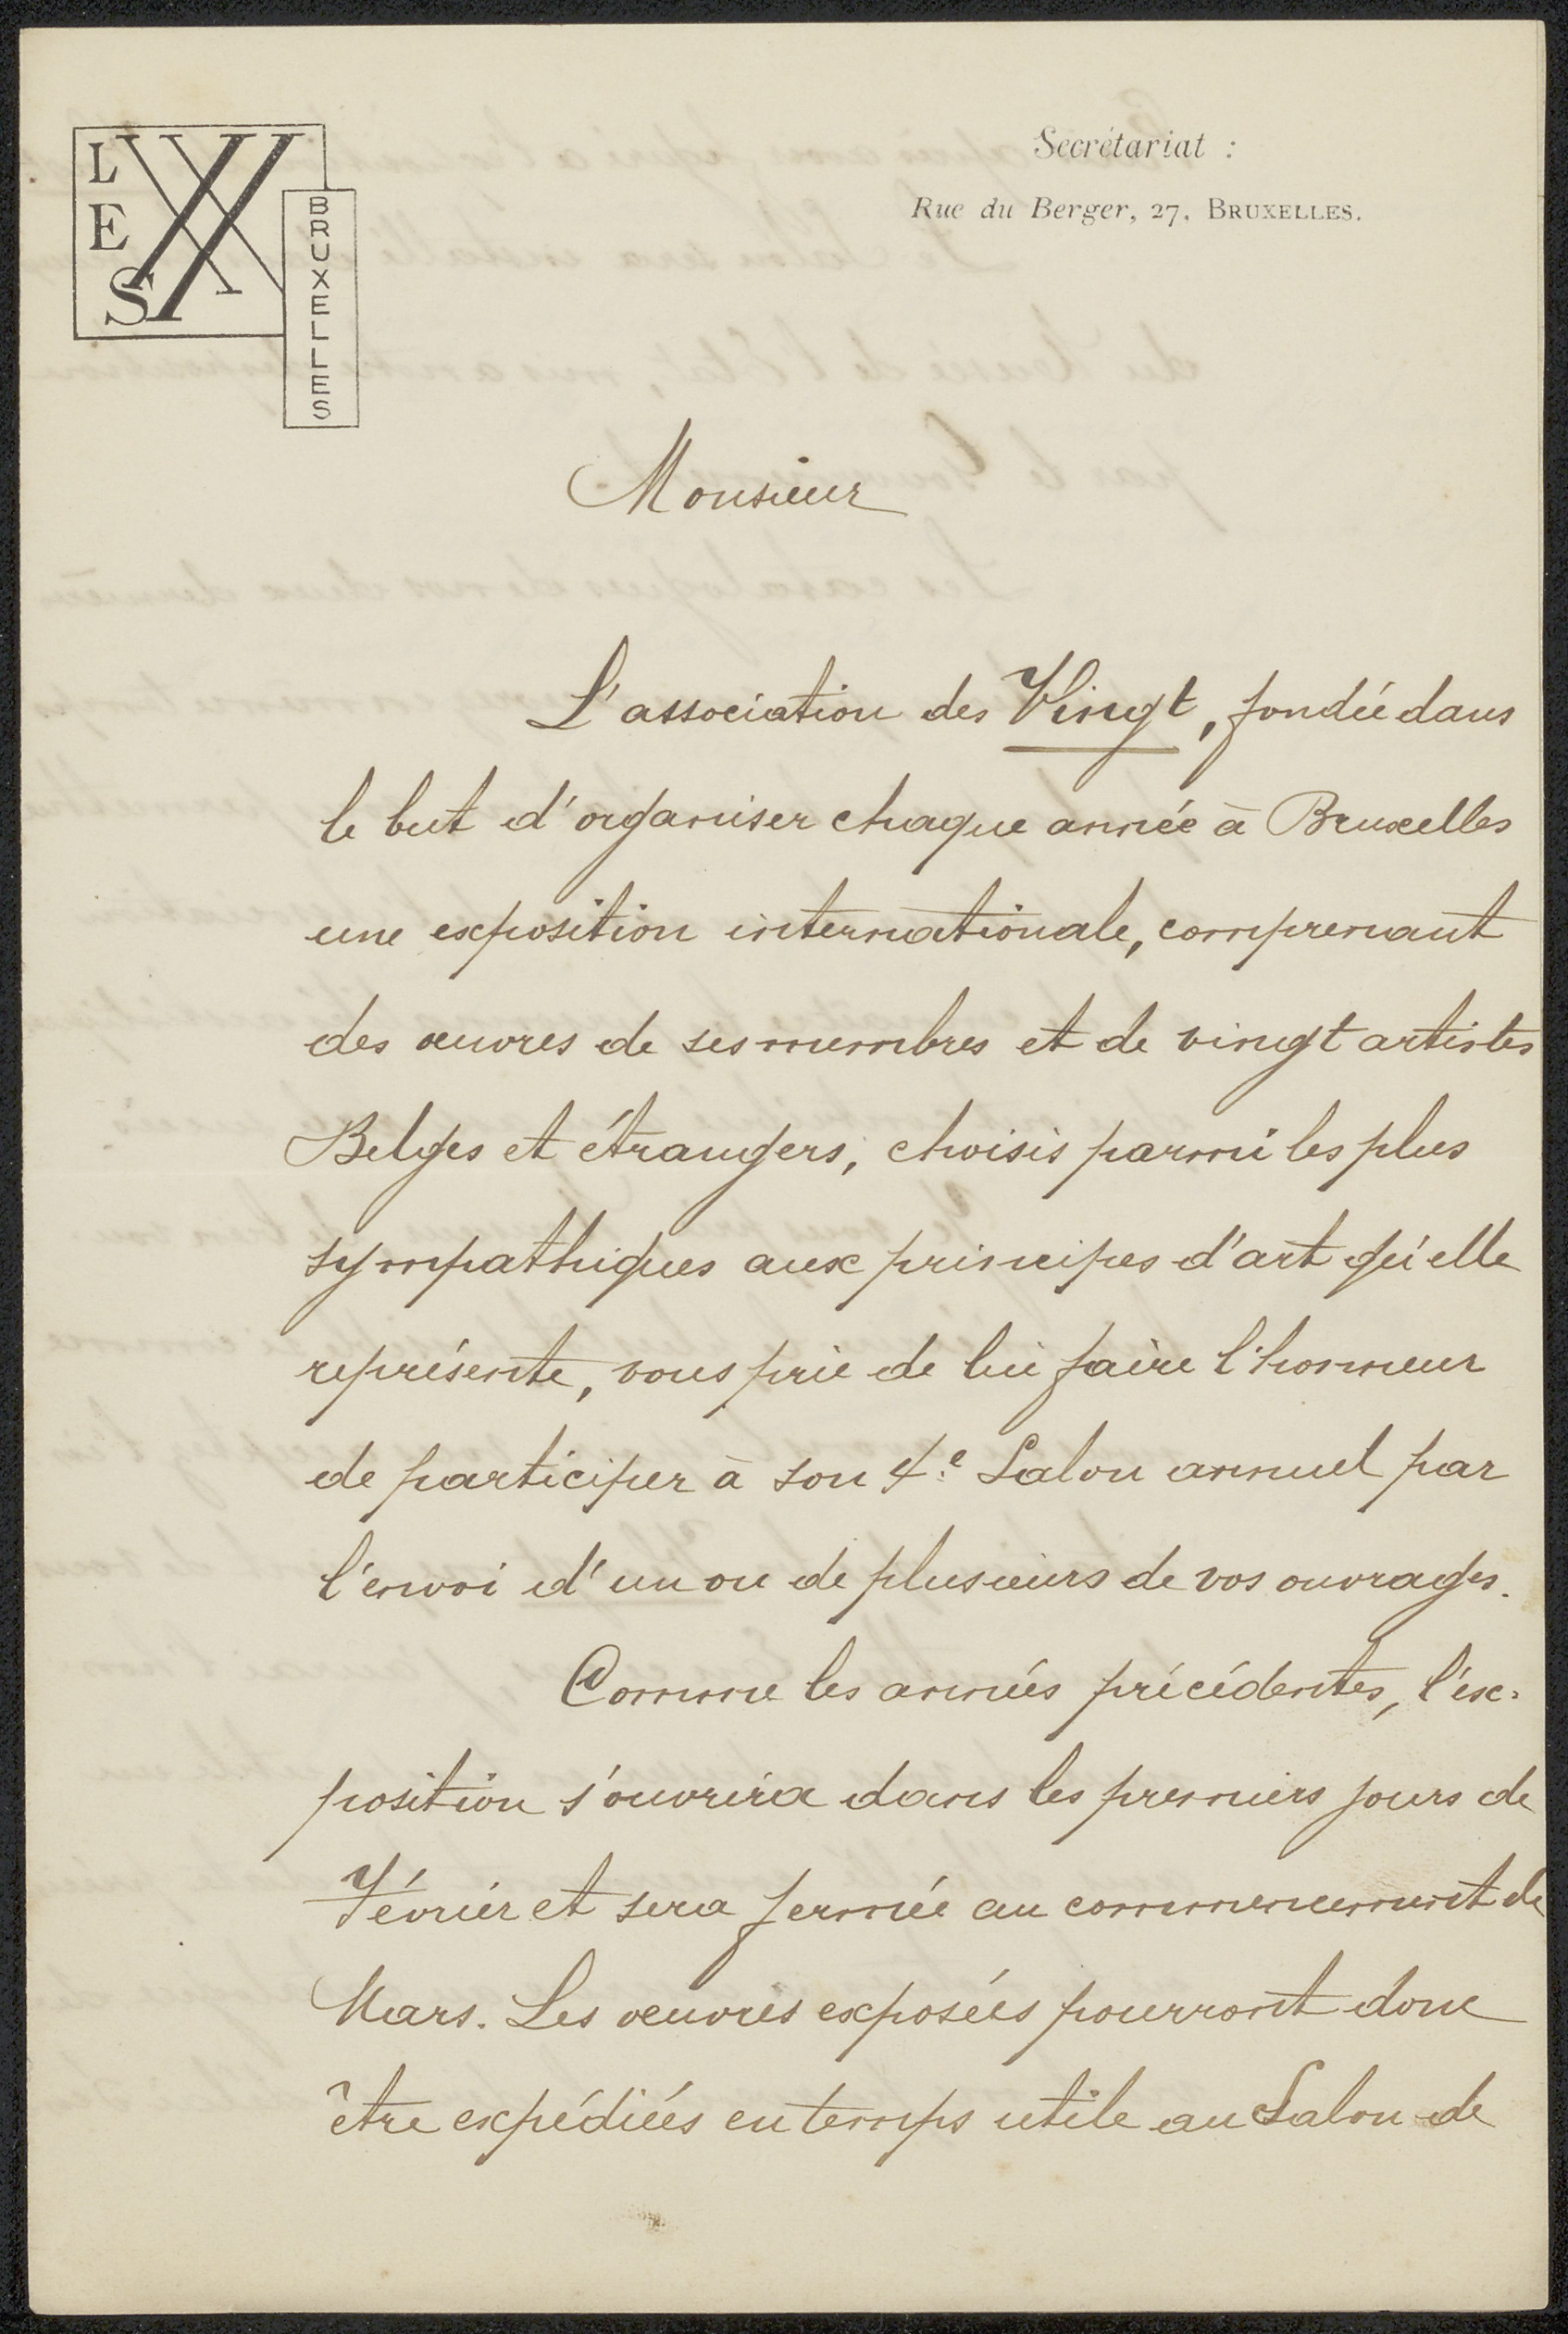 LES XX
BRUXELLES
Secrétariat :
Rue du Berger, 27, BRUXELLES.
Monsieur
L'association des Vingt, fondée dans
le but d'organiser chaque année à Bruxelles
une exposition internationale, comprenant
des œuvres de ses membres et de vingt artistes
Belges et étrangers, choisis parmi les plus
sympathiques aux principes d'art qu'elle
représente, vous prie de lui faire l'honneur
de participer à son 4.e Salon annuel par
l'envoi d'un ou de plusieurs de vos ouvrages.
Comme les années précédentes, l'ex-
position s'ouvrira dans les premiers jours de
Février et sera fermée au commencement de
Mars. Les œuvres exposées pourront donc
être expédiées en temps utile au Salon de